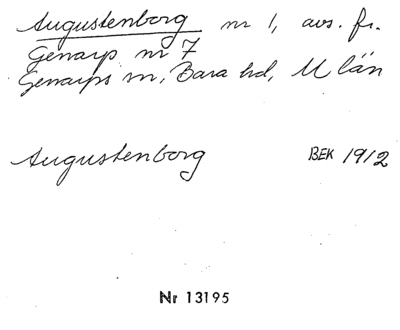 Augustenborg nr 1, avs. fr.
Genarp nr 7
Genarps sn, Bara hd, M län
Augustenborg BEK 1912
Nr 13195